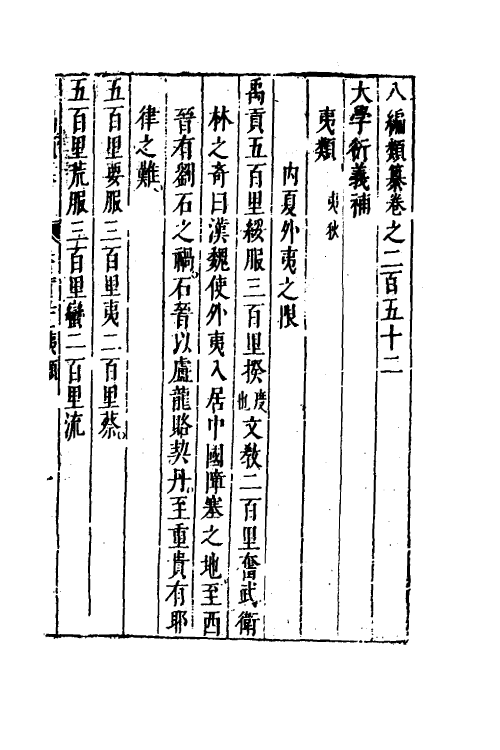 八編類纂卷之二百五十二
大學衍義補
夷類 夷狄
內夏外夷之限
禹貢五百里綏服三百里揆度也文敎二百里奮武衛
林之奇曰漢魏使外夷入居中國障塞之地至西
晉有劉石之禍石晉以盧龍賂契丹至重貴有耶
律之難
五百里要服三百里夷二百里蔡
五百里荒服三百里蠻二百里流